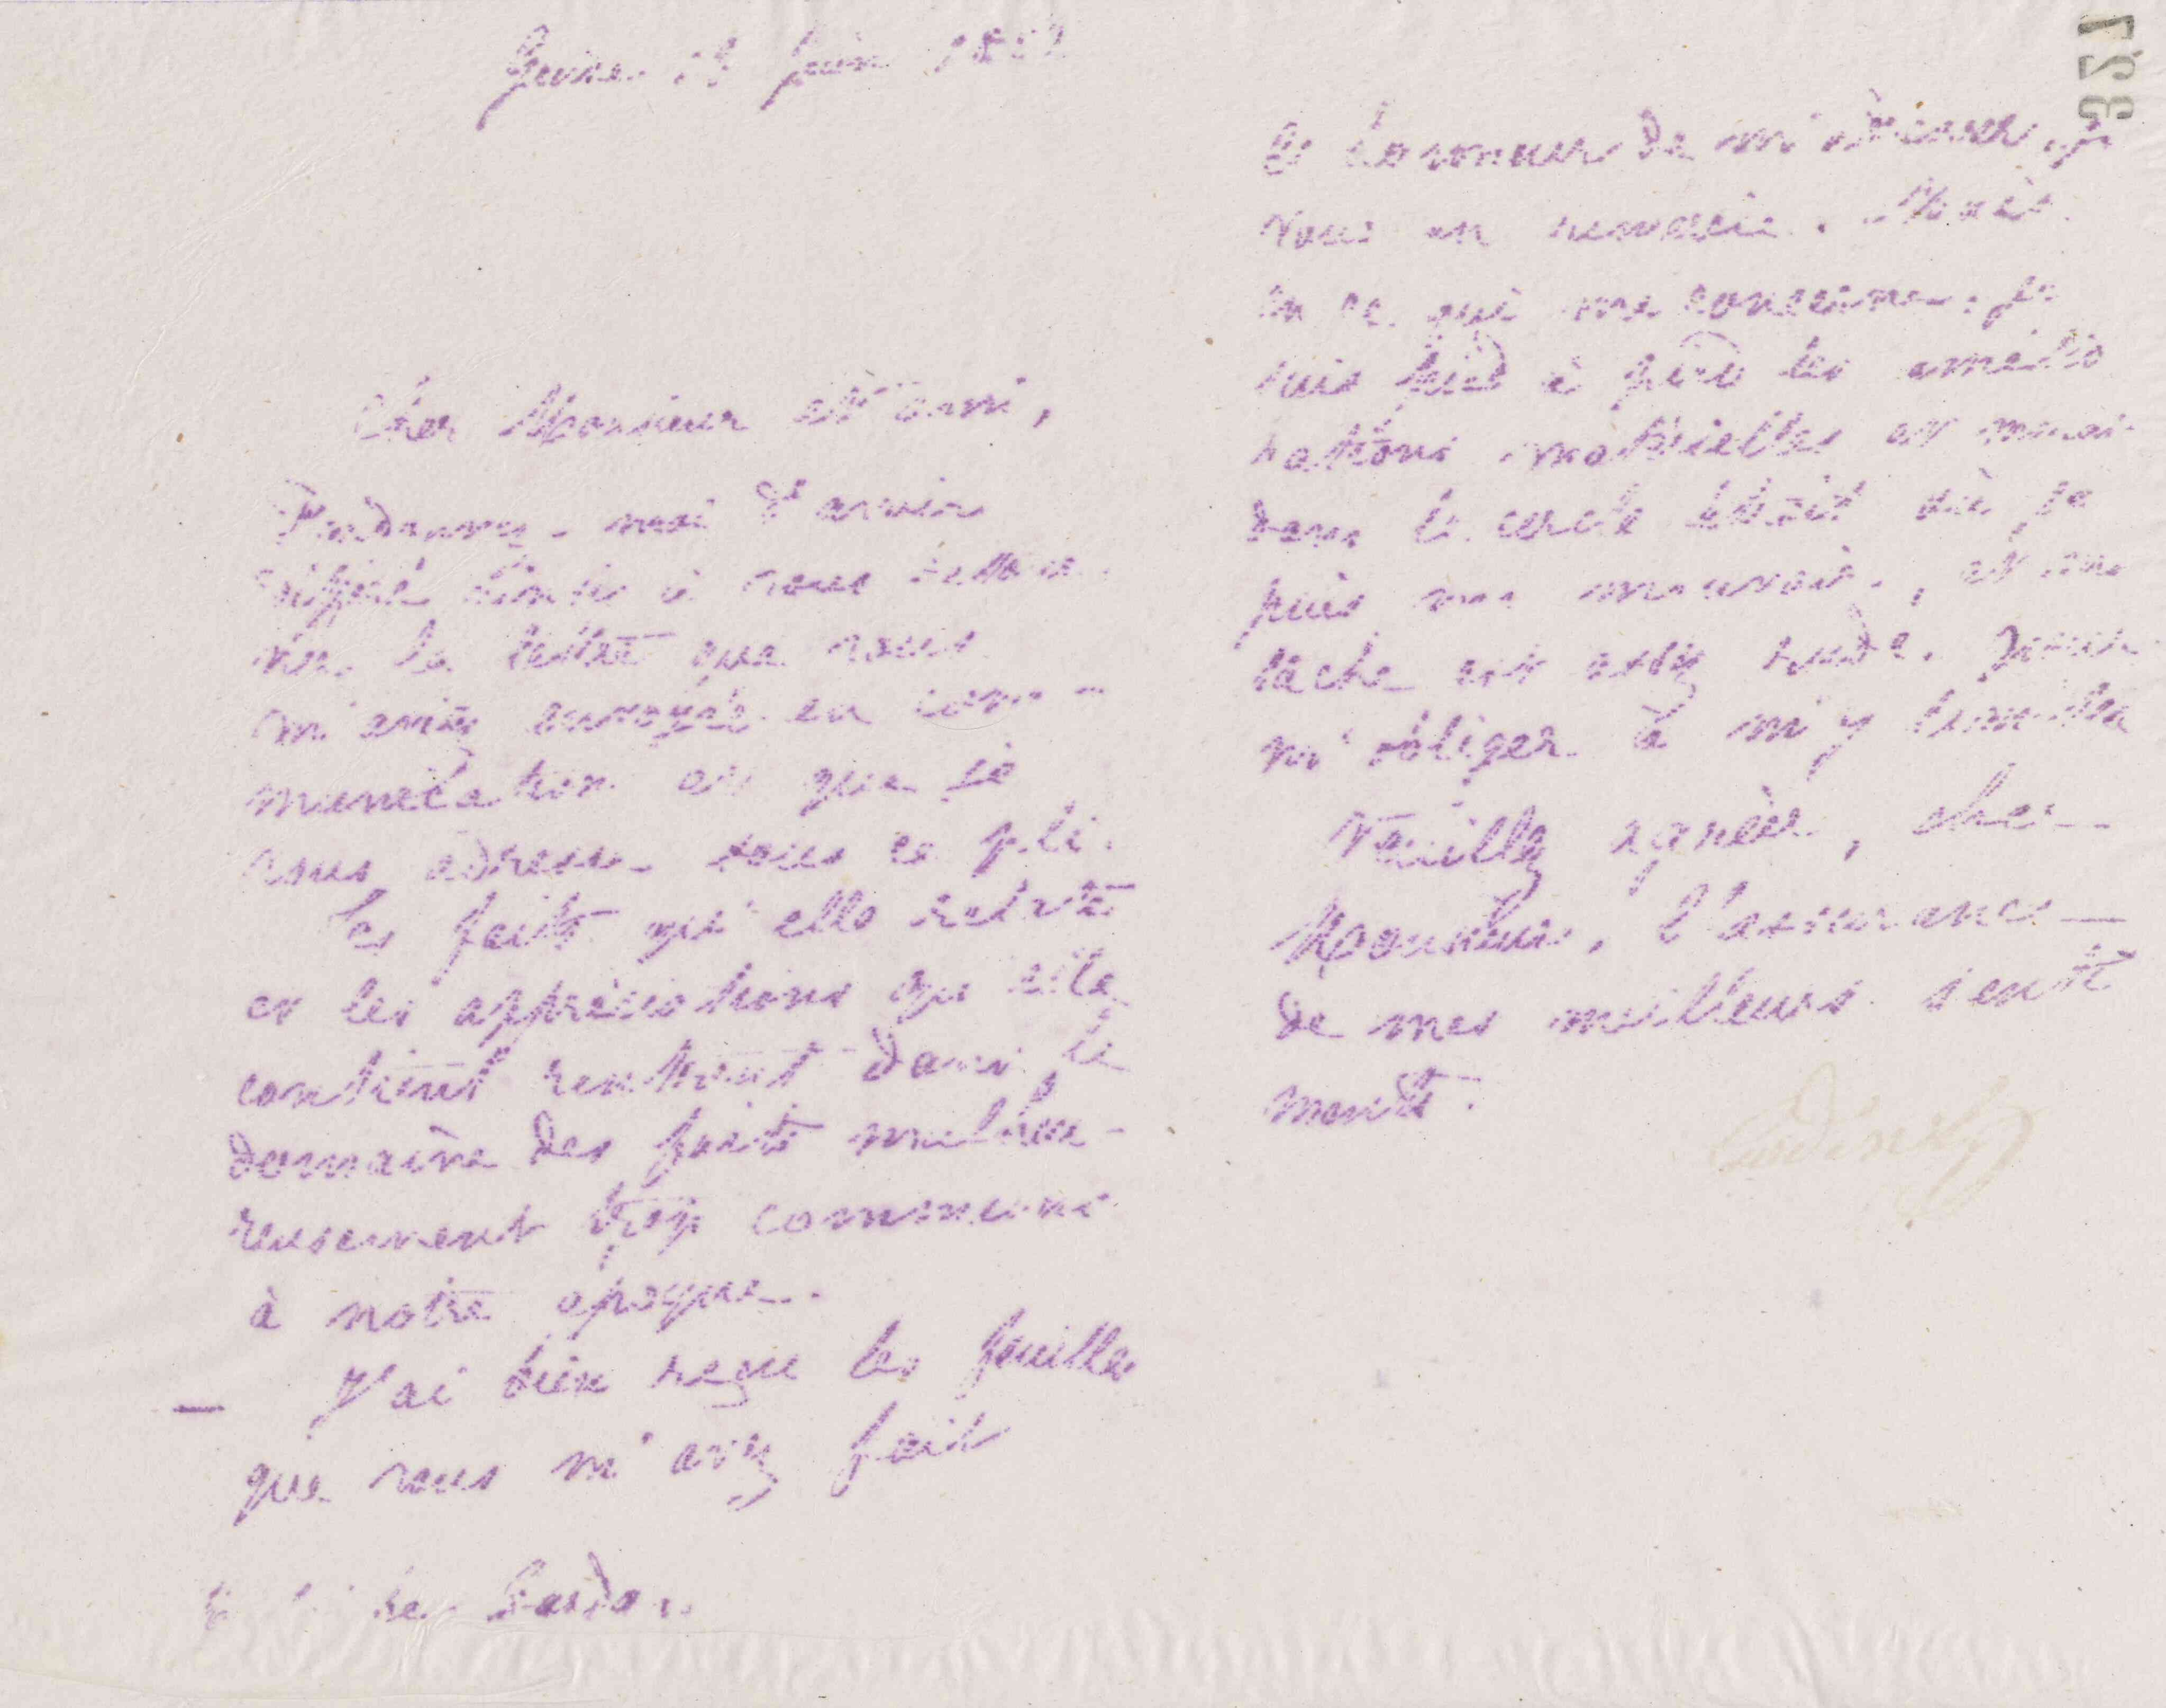 Guise 23 Juin 1882
Cher Monsieur et ami,
Pardonnez-moi d'avoir
différé à vous retour
ner la lettre que vous
m'aviez envoyée en com-
munication et que je
vous adresse sous ce pli.
Les faits qu'elle relate
et les appréciations qu'elle
contient rentrent dans le
domaine des faits malheu-
reusement trop communs
à notre époque.
— J'ai bien reçu les feuilles
que vous m'avez fait
de Barda
321
l'honneur de m'adresser, je
vous en remercie. Mais
en ce qui me concerne, je
suis pied à pied les amélio
rations matérielles et morales
dans le cercle étroit où je
puis me mouvoir, et ma
tâche est assez rude, pour
m'obliger à m'y
Veuillez agréer, cher
Monsieur, l'assurance
de mes meilleurs senti
ments.
Godin